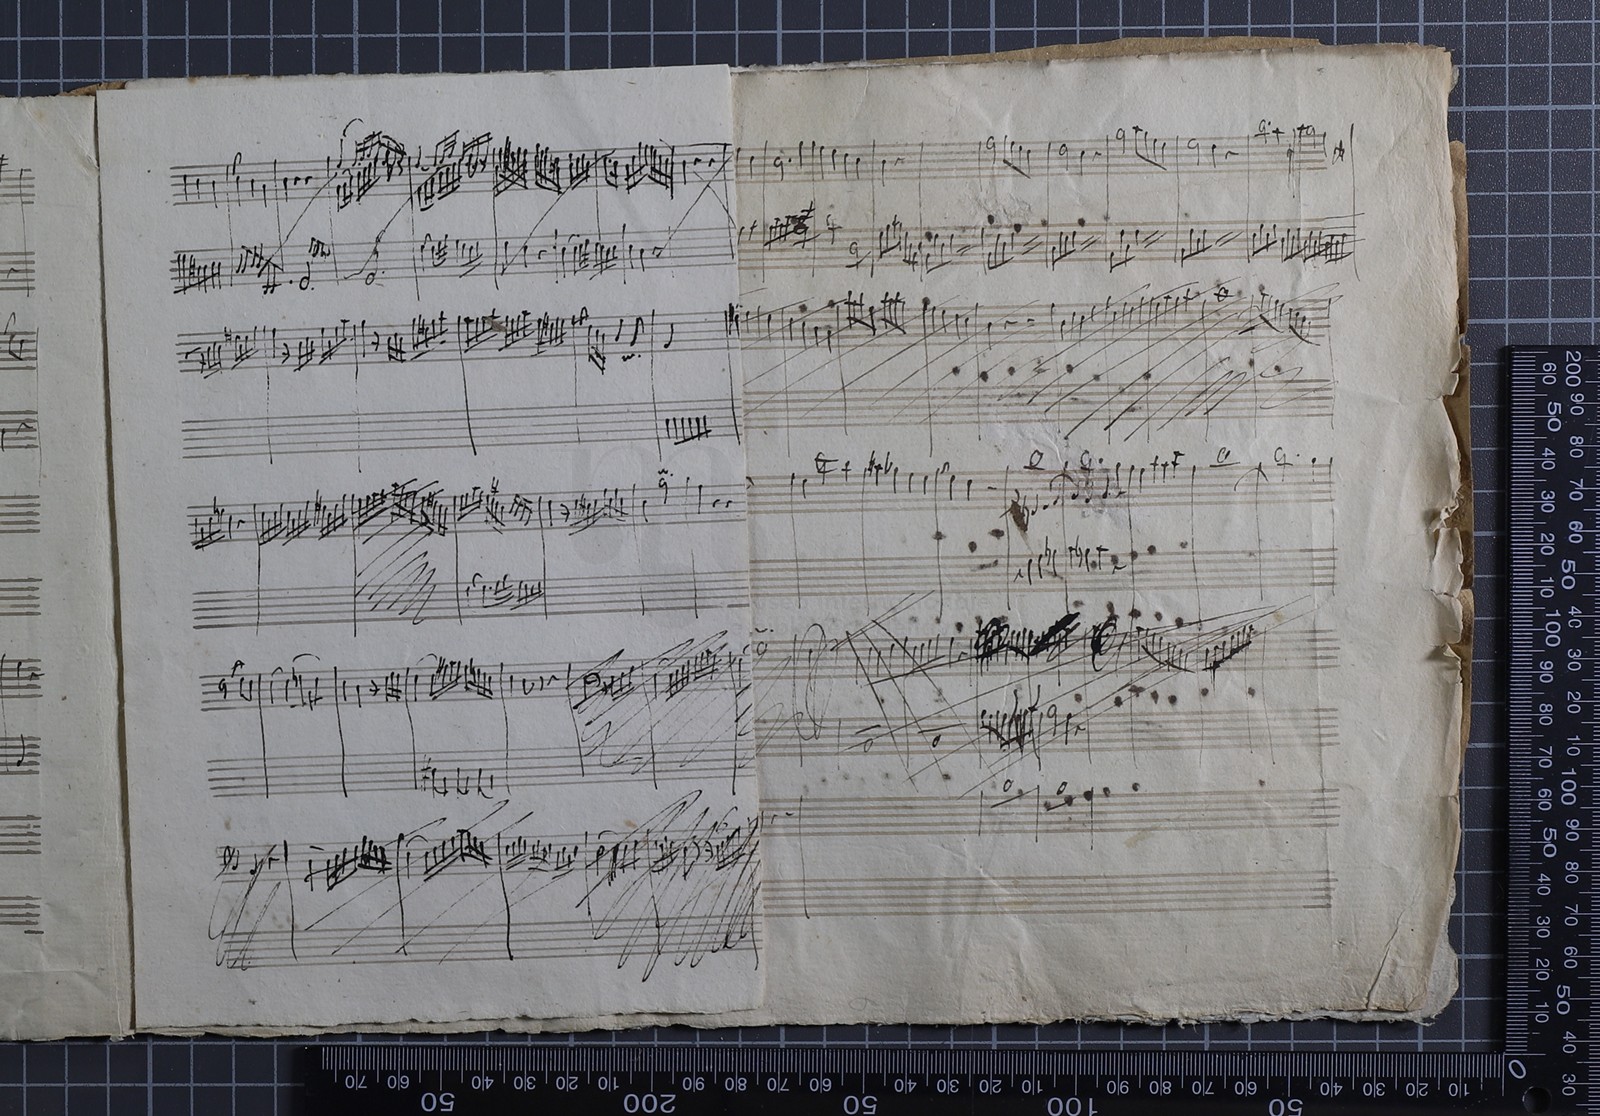 60 50 40 30 20 10 100 90 80 70 60 50 40 30 20 10 0
200 90 80 70 60 50 40 30 20 10 100 90 80 70 60 50 40 30
10 20 30 40 50 60 70 80 90 100 10 20 30 40 50 60 70 80 90 200 10 20 30 40 50 60 70